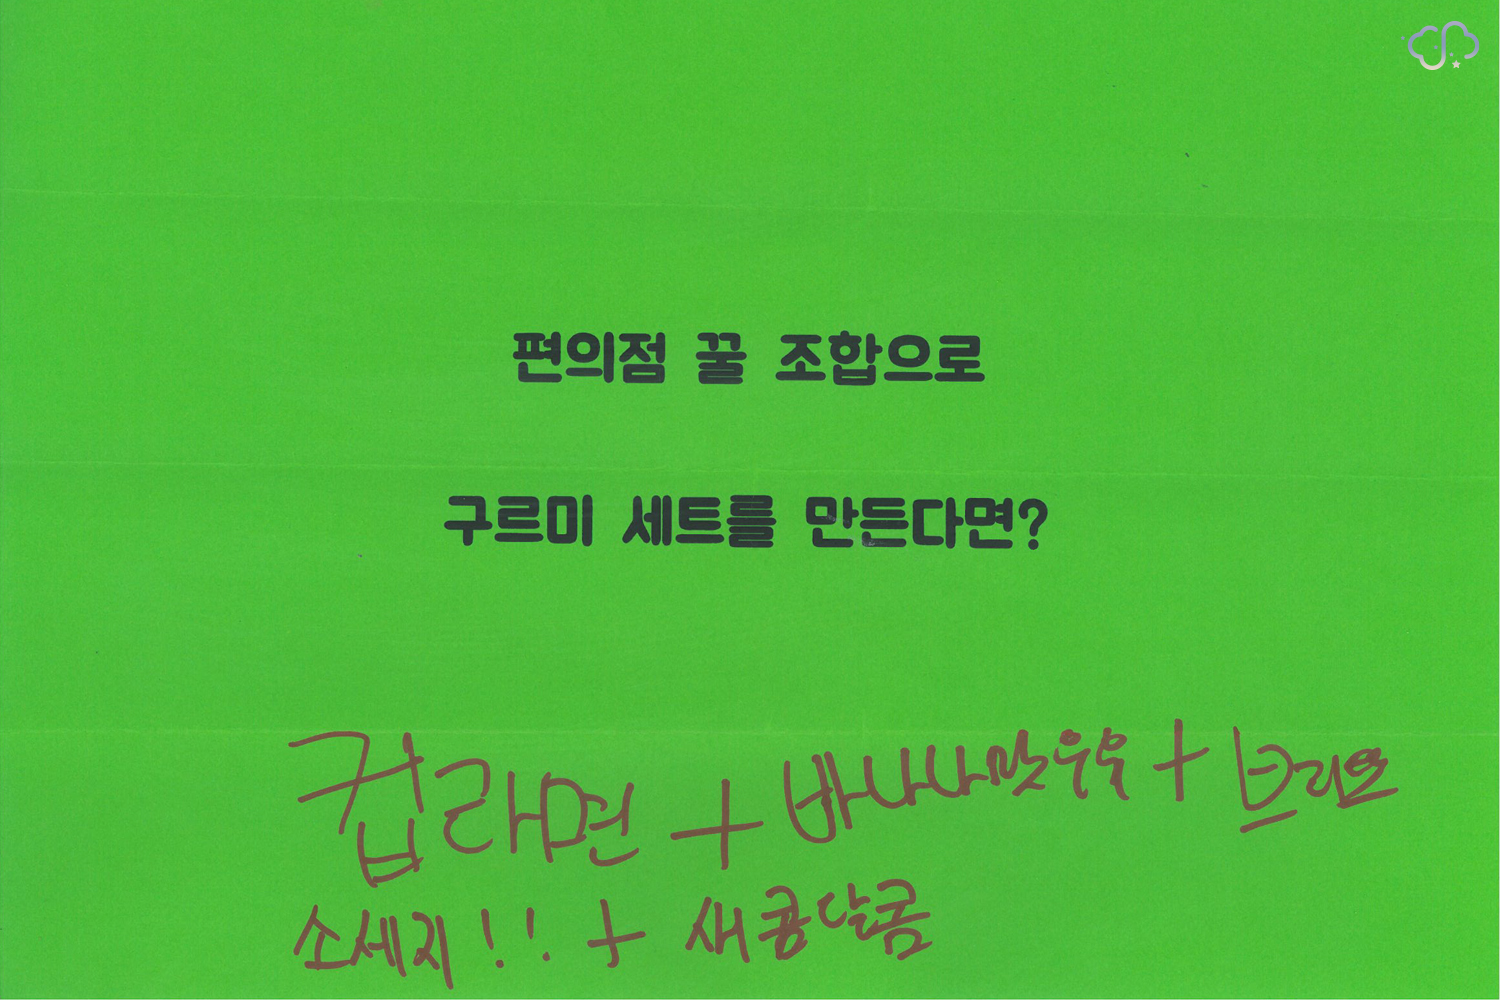 편의점 꿀 조합으로
구르미 세트를 만든다면?
컵라면 + 바나나맛우유 + 브리또
소세지!! + 새콩달콤